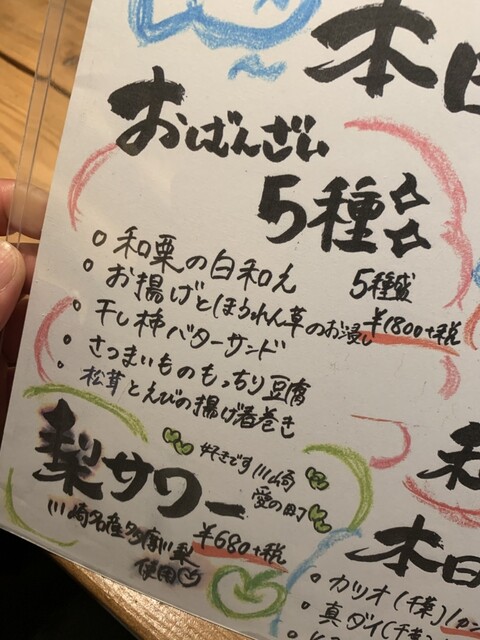 本日
おばんざい
5種
○ 和栗の白和え
○ お揚げとほうれん草のお浸し
○ 干し柿バターサンド
○ さつまいものもっちり豆腐
○ 松茸とえびの揚げ春巻き
5種盛
¥1800+税
梨サワー
好きです川崎
愛の町
川崎名産多摩川梨
使用
¥680+税
本日
・カツオ(千葉)
・真ダイ(千葉